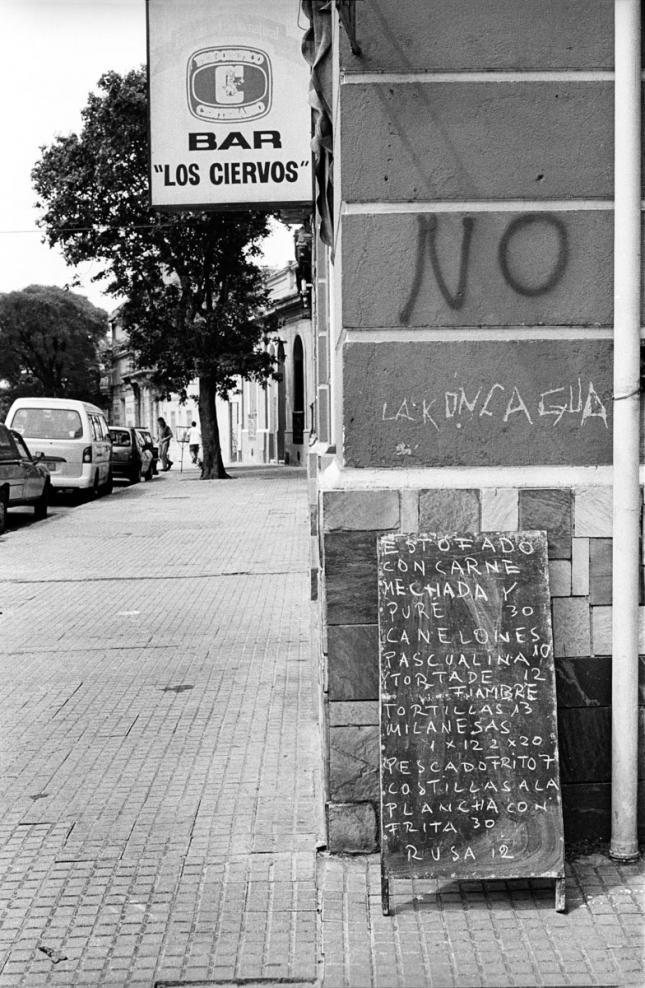 BAR
"LOS CIERVOS"
NO
LA KONCAGUA
ESTOFADO
CON CARNE
MECHADA Y
PURE 30
CANELONES
PASCUALINA 10
Y TORTA DE 12
FIAMBRE
TORTILLAS 13
MILANESAS
1 X 12 2 X 20
PESCADO FRITO 7
COSTILLAS A LA
PLANCHA CON
FRITA 30
RUSA 12